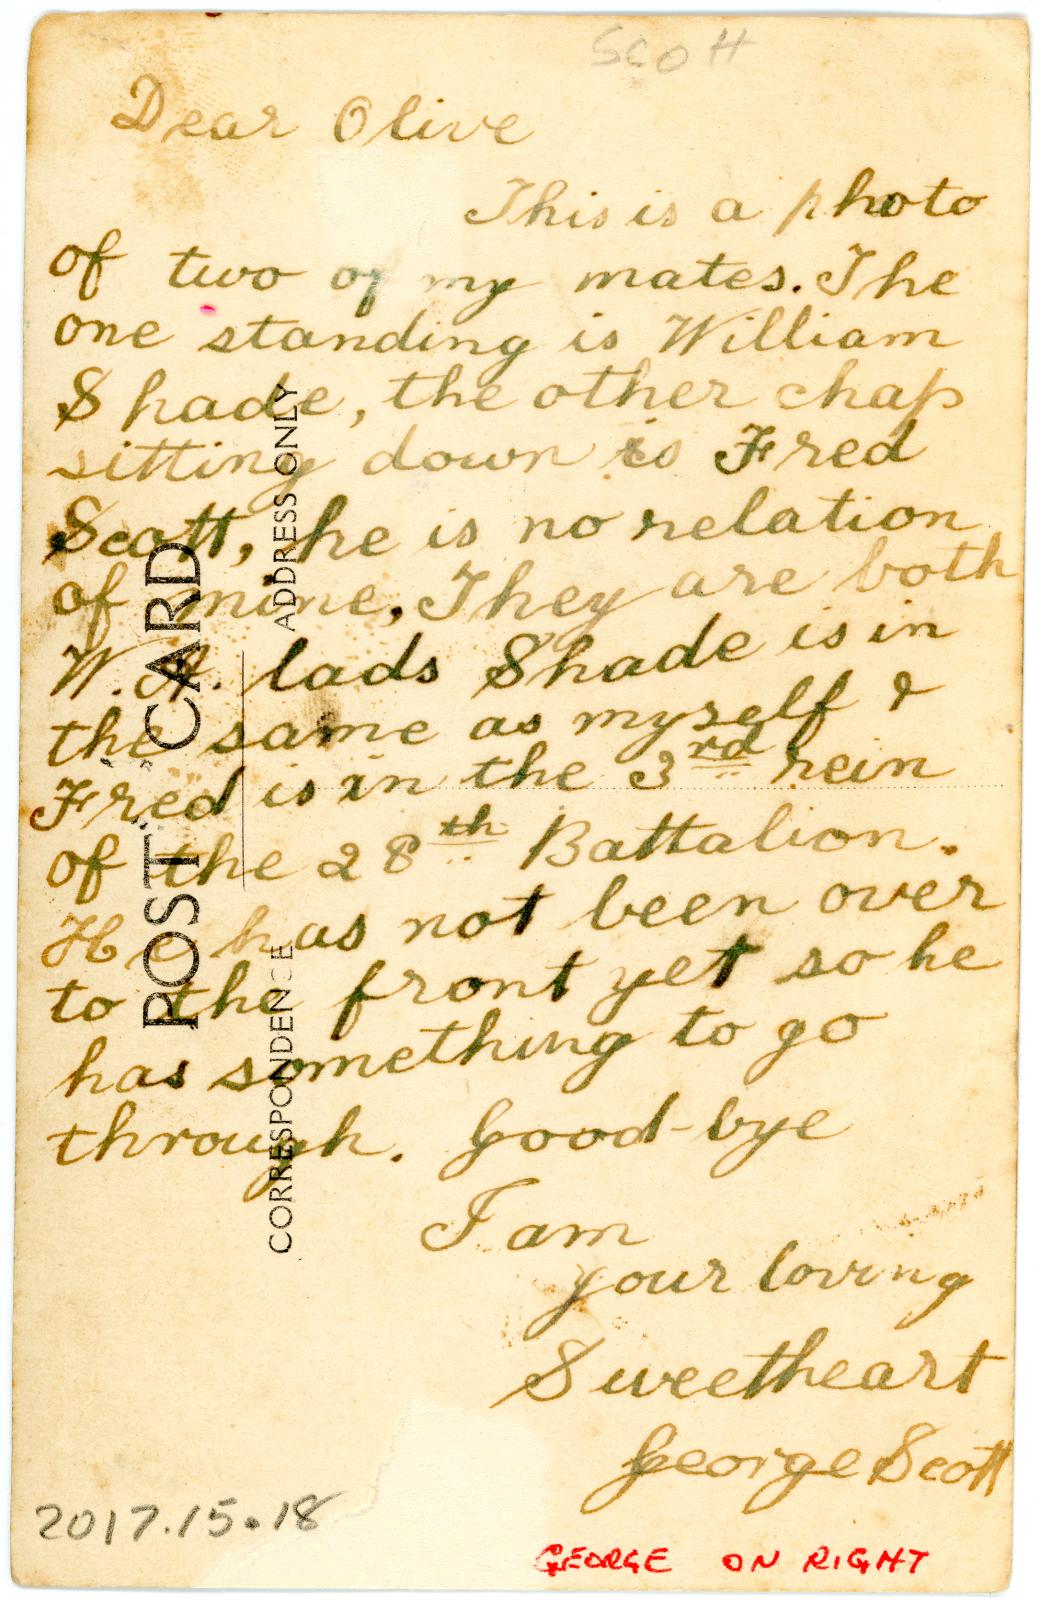 Scott
Dear Olive
This is a photo
of two of my mates. The
one standing is William
Shade, the other chap
sitting down is Fred
Scott, he is no relation
of mine. They are both
W.A. lads Shade is in
the same as myself &
Fred is in the 3rd rein
of the 28th Battalion.
He has not been over
to the front yet so he
has something to go
through. Good-bye
I am
your loving
Sweetheart
George Scott
2017.15.18
GEORGE ON RIGHT
POST CARD
CORRESPONDENCE
ADDRESS ONLY